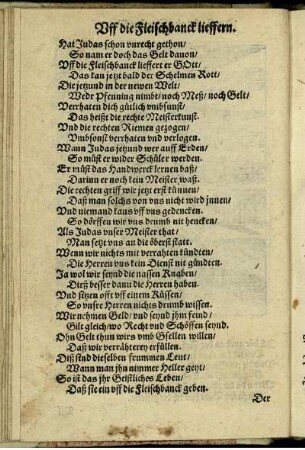 Vff die Fleischbanck lieffern.
Hat Judas schon vnrecht gethon/
So nam er doch das Gelt dauon/
Vff die Fleischbanck lieffert er GOtt/
Das kan jetzt bald der Schelmen Rott/
Die jetzund in der newen Welt/
Wedr Pfenning nimbt/ noch Meß/ noch Gelt/
Verrhaten dich gütlich vmbsunst/
Das heißt die rechte Meisterkunst.
Vnd die rechten Riemen gezogen/
Vmbsonst verrhaten vnd verlogen.
Wann Judas jetzund wer auff Erden/
So müst er wider Schüler werden.
Er müst das Handwerck lernen baß/
Darinn er noch kein Meister waß.
Die rechten griff wir jetz erst künnen/
Daß man solchs von vns nicht wird jnnen/
Vnd niemand kans vff vns gedencken.
So dörffen wir vns drumb nit hencken/
Als Judas vnser Meister that/
Man setzt vns an die öberst statt.
Wenn wir nichts mit verrahten kündten/
Die Herren vns kein Dienst nit gündten.
Ja wol wir seynd die nassen Knaben/
Dieß besser dann die Herren haben.
Vnd sitzen offt vff einem Küssen/
So vnsre Herren nichts drumb wissen.
Wir nehmen Geld/ vnd seynd jhm feind/
Gilt gleich/ wo Recht vnd Schöffen seynd.
Ohn Gelt thun wirs vmb Gsellen willen/
Daß wir verrähterey erfüllen.
Diß sind dieselben frummen Leut/
Wann man jhn nimmer Heller geyt/
So ist das jhr Geistliches Leben/
Daß sie ein vff die Fleischbanck geben.
Der